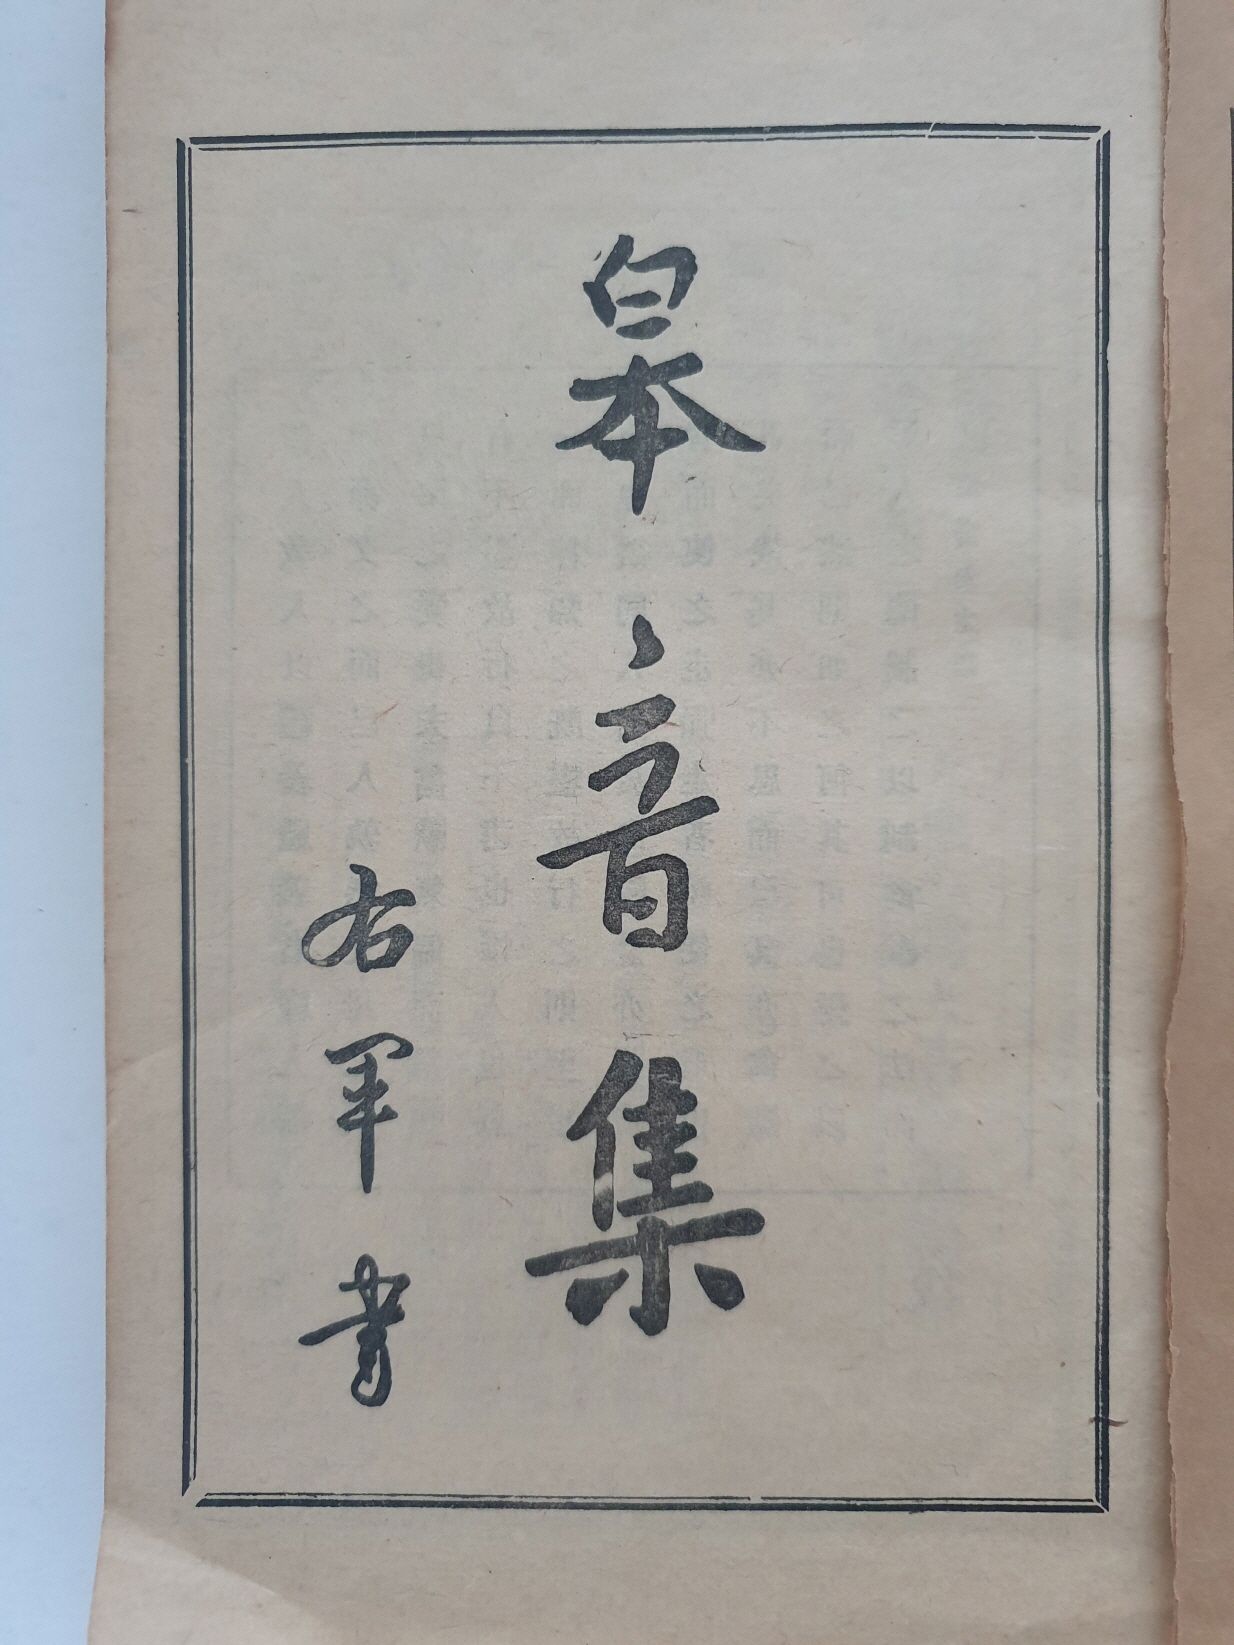 皋音集
右軍書